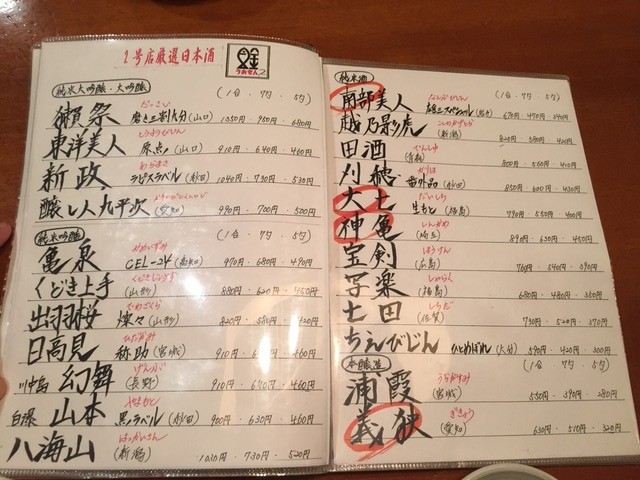 2号店厳選日本酒
うおきん2
純米大吟醸・大吟醸 (1合・7勺・5勺)
だっさい
獺祭 磨き三割九分 (山口) 1350円・950円・680円
とうようびじん
東洋美人 原点 (山口) 910円・640円・460円
あらまさ
新政 ラピスラベル (秋田) 1040円・730円・530円
醸し人九平次 (愛知) 990円・700円・500円
純米吟醸 (1合・7勺・5勺)
かめいずみ
亀泉 CEL-24 (高知) 970円・680円・490円
くどきじょうず
くどき上手 (山形) 880円・620円・450円
でわざくら
出羽桜 燦々 (山形) 820円・580円・420円
ひたかみ
日高見 弥助 (宮城) 910円・640円・460円
げんぶ
川中島 幻舞 (長野) 910円・640円・460円
やまもと
白瀑 山本 黒ラベル (秋田) 900円・630円・460円
はっかいさん
八海山 (新潟) 1030円・730円・520円
純米酒 (1合・7勺・5勺)
なんぶびじん
南部美人 670円・470円・340円
こしのかげとら
越乃景虎 (新潟) 820円・580円・420円
でんしゅ
田酒 (青森) 800円・560円・410円
かりほ
刈穂 番外品 (秋田) 850円・600円・430円
だいしち
大七 生もと (福島) 790円・550円・400円
しんかめ
神亀 (埼玉) 890円・630円・450円
ほうけん
宝剣 (広島) 760円・540円・390円
しゃらく
写楽 (福島) 680円・480円・350円
しちだ
七田 (佐賀) 730円・520円・370円
ちえびじん ひとめぼれ (大分) 590円・420円・300円
本醸造 (1合・7勺・5勺)
うらかすみ
浦霞 (宮城) 550円・390円・280円
ぎきょう
義侠 (愛知) 630円・510円・320円